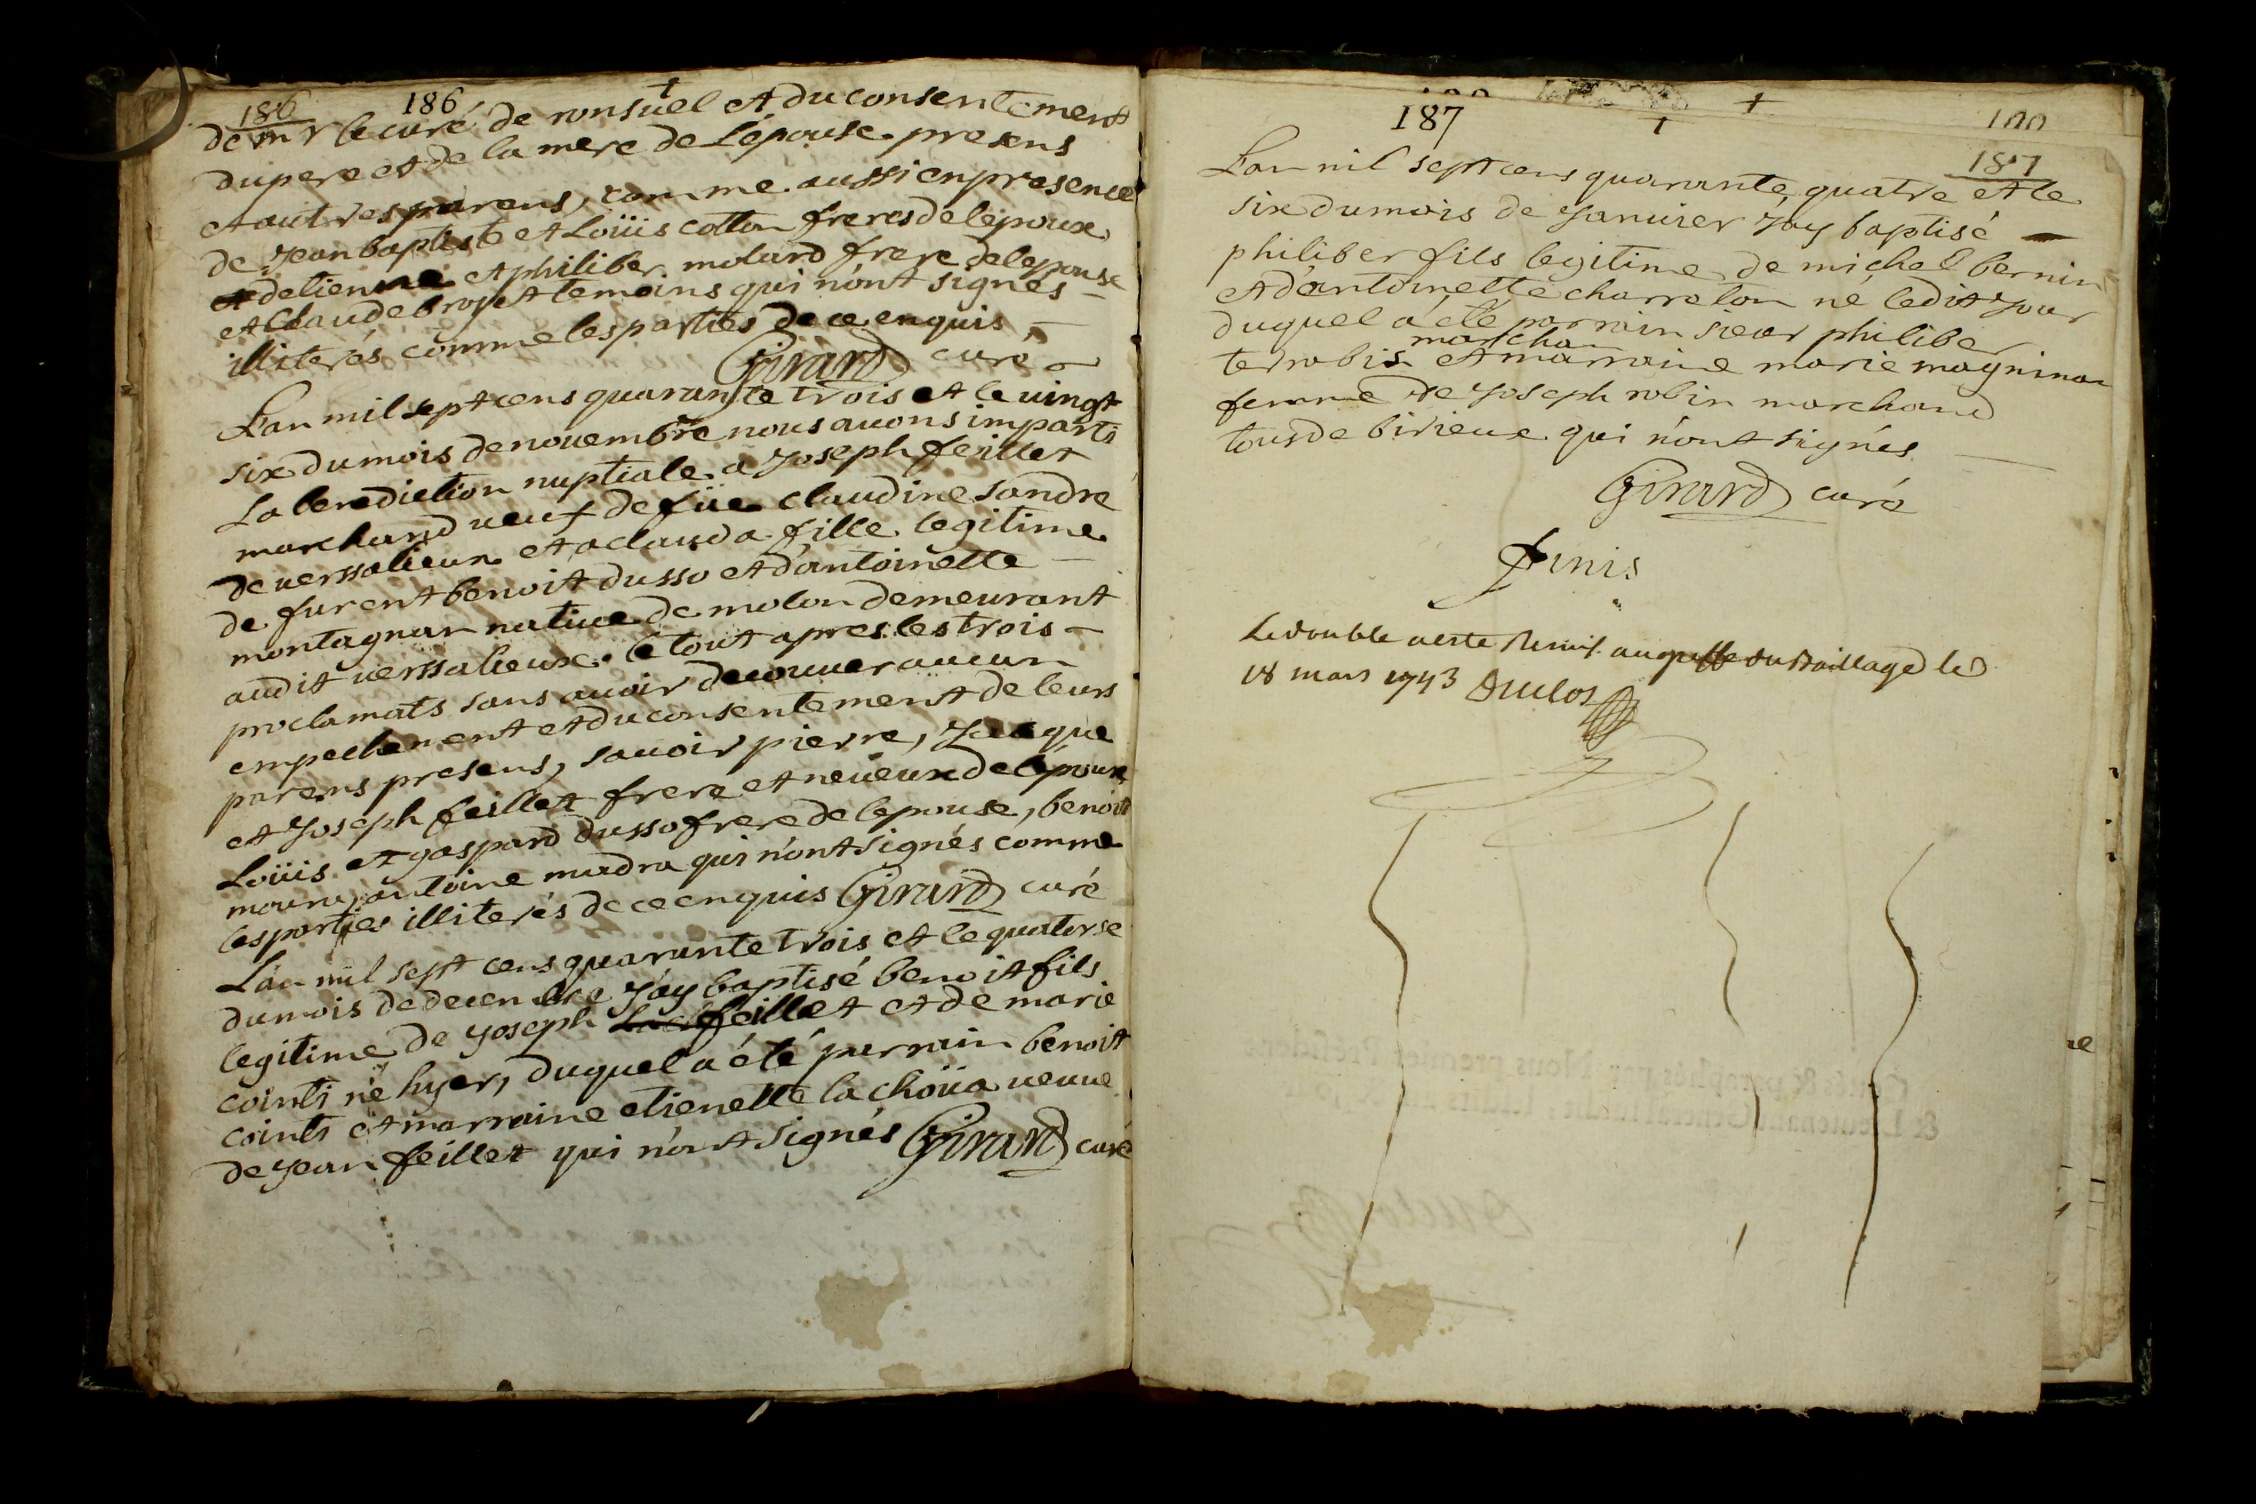 186 186 +
de mr le curé de ronsuel et du consentement
du pere et de la mere de L'épouse presens
et autres parens, comme aussi en presence
de Jean baptiste et Loüis cotton freres de l'époux,
et detienne et philiber molard frere de lepouse
et Claude broyet temoins qui n'ont signés
illiterés comme les parties de ce enquis
Girard curé
L'an mil sept cens quarante trois et le vingt
six du mois de nouembre nous auons imparti
La benediction nuptiale a Joseph feillet
marchand veuf de füe Claudine Sandre
de uerssalieux et a clauda fille legitime
de furent benoit dusso et d'antoinette
montagnar natiue de molon demeurant
audit uerssalieux. le tout apres les trois
proclamats sans auoir decouuer aucun
empechement et du consentement de leurs
parens presens, sauoir pierre, Jacque
et Joseph feillet frere et neueux de l'époux,
Loüis et gaspard dusso frere de lepouse, benoit
antoine madra qui n'ont signés comme
les parties illiterés de ce enquis Girard curé
L'an mil sept cens quarante trois et le quatorse
du mois de decembre J'ay baptisé benoit fils
legitime de Joseph feillet et de marie
cointi né hyer, duquel a été parrain benoit
cointi et marraine etienette la choüa ueuue
de Jean feillet qui n'ont signés Girard curé
187 +
187
L'an mil sept cens quarante quatre et le
six du mois de Januier J'ay baptisé
philiber fils legitime de michel bernin
et d'antoinette charreton né ledit Jour
duquel a été parrain sieur philiber
marchan
terrobis et marraine marie magninan
femme de Joseph robin marchand
tous de birieux qui n'ont signés
Girard curé
finis
Le double a esté Remis au greffe du Baillage le
18 mars 1743 Duclos